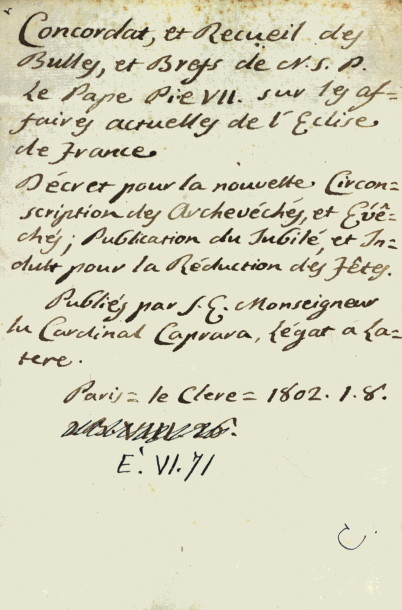 Concordat, et Recüeil des
Bulles, et Brefs de N. S. P.
Le Pape Pie VII. sur les af-
faires actuelles de l'Eclise
de France
Décret pour la nouvelle Circon=
scription des Archevêchés, et Evê=
chés; Publication du Jubilé, et In=
dult pour la Réduction des Fêtes.
Publiés par S. E. Monseigneur
lu Cardinal Caprara, Légat a La=
tere.
Paris= le Clere= 1802. 1. 8.
E. VI. 71